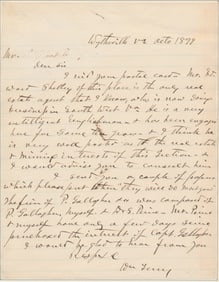 Wytheville Va Oct 6 1877
Mr.
Dear Sir
I recd your postal card Mr. Ed
ward Shelley of this place is the only real
estate agent that I know, who is now doing
business in South West Va. He is a very
intelligent Englishman & has been engaged
here for some few years & I think he
is very well posted as to the real estate
& mining interests of this section &
I would advise you to consult him
I send you a couple of papers
which please put where they will do most good
P. Gallagher so was composed of
P. Gallagher, myself &
myself have only a few days since
purchased the interest of Capt Gallagher
I would be glad to hear from you
Respec
Wm Terry